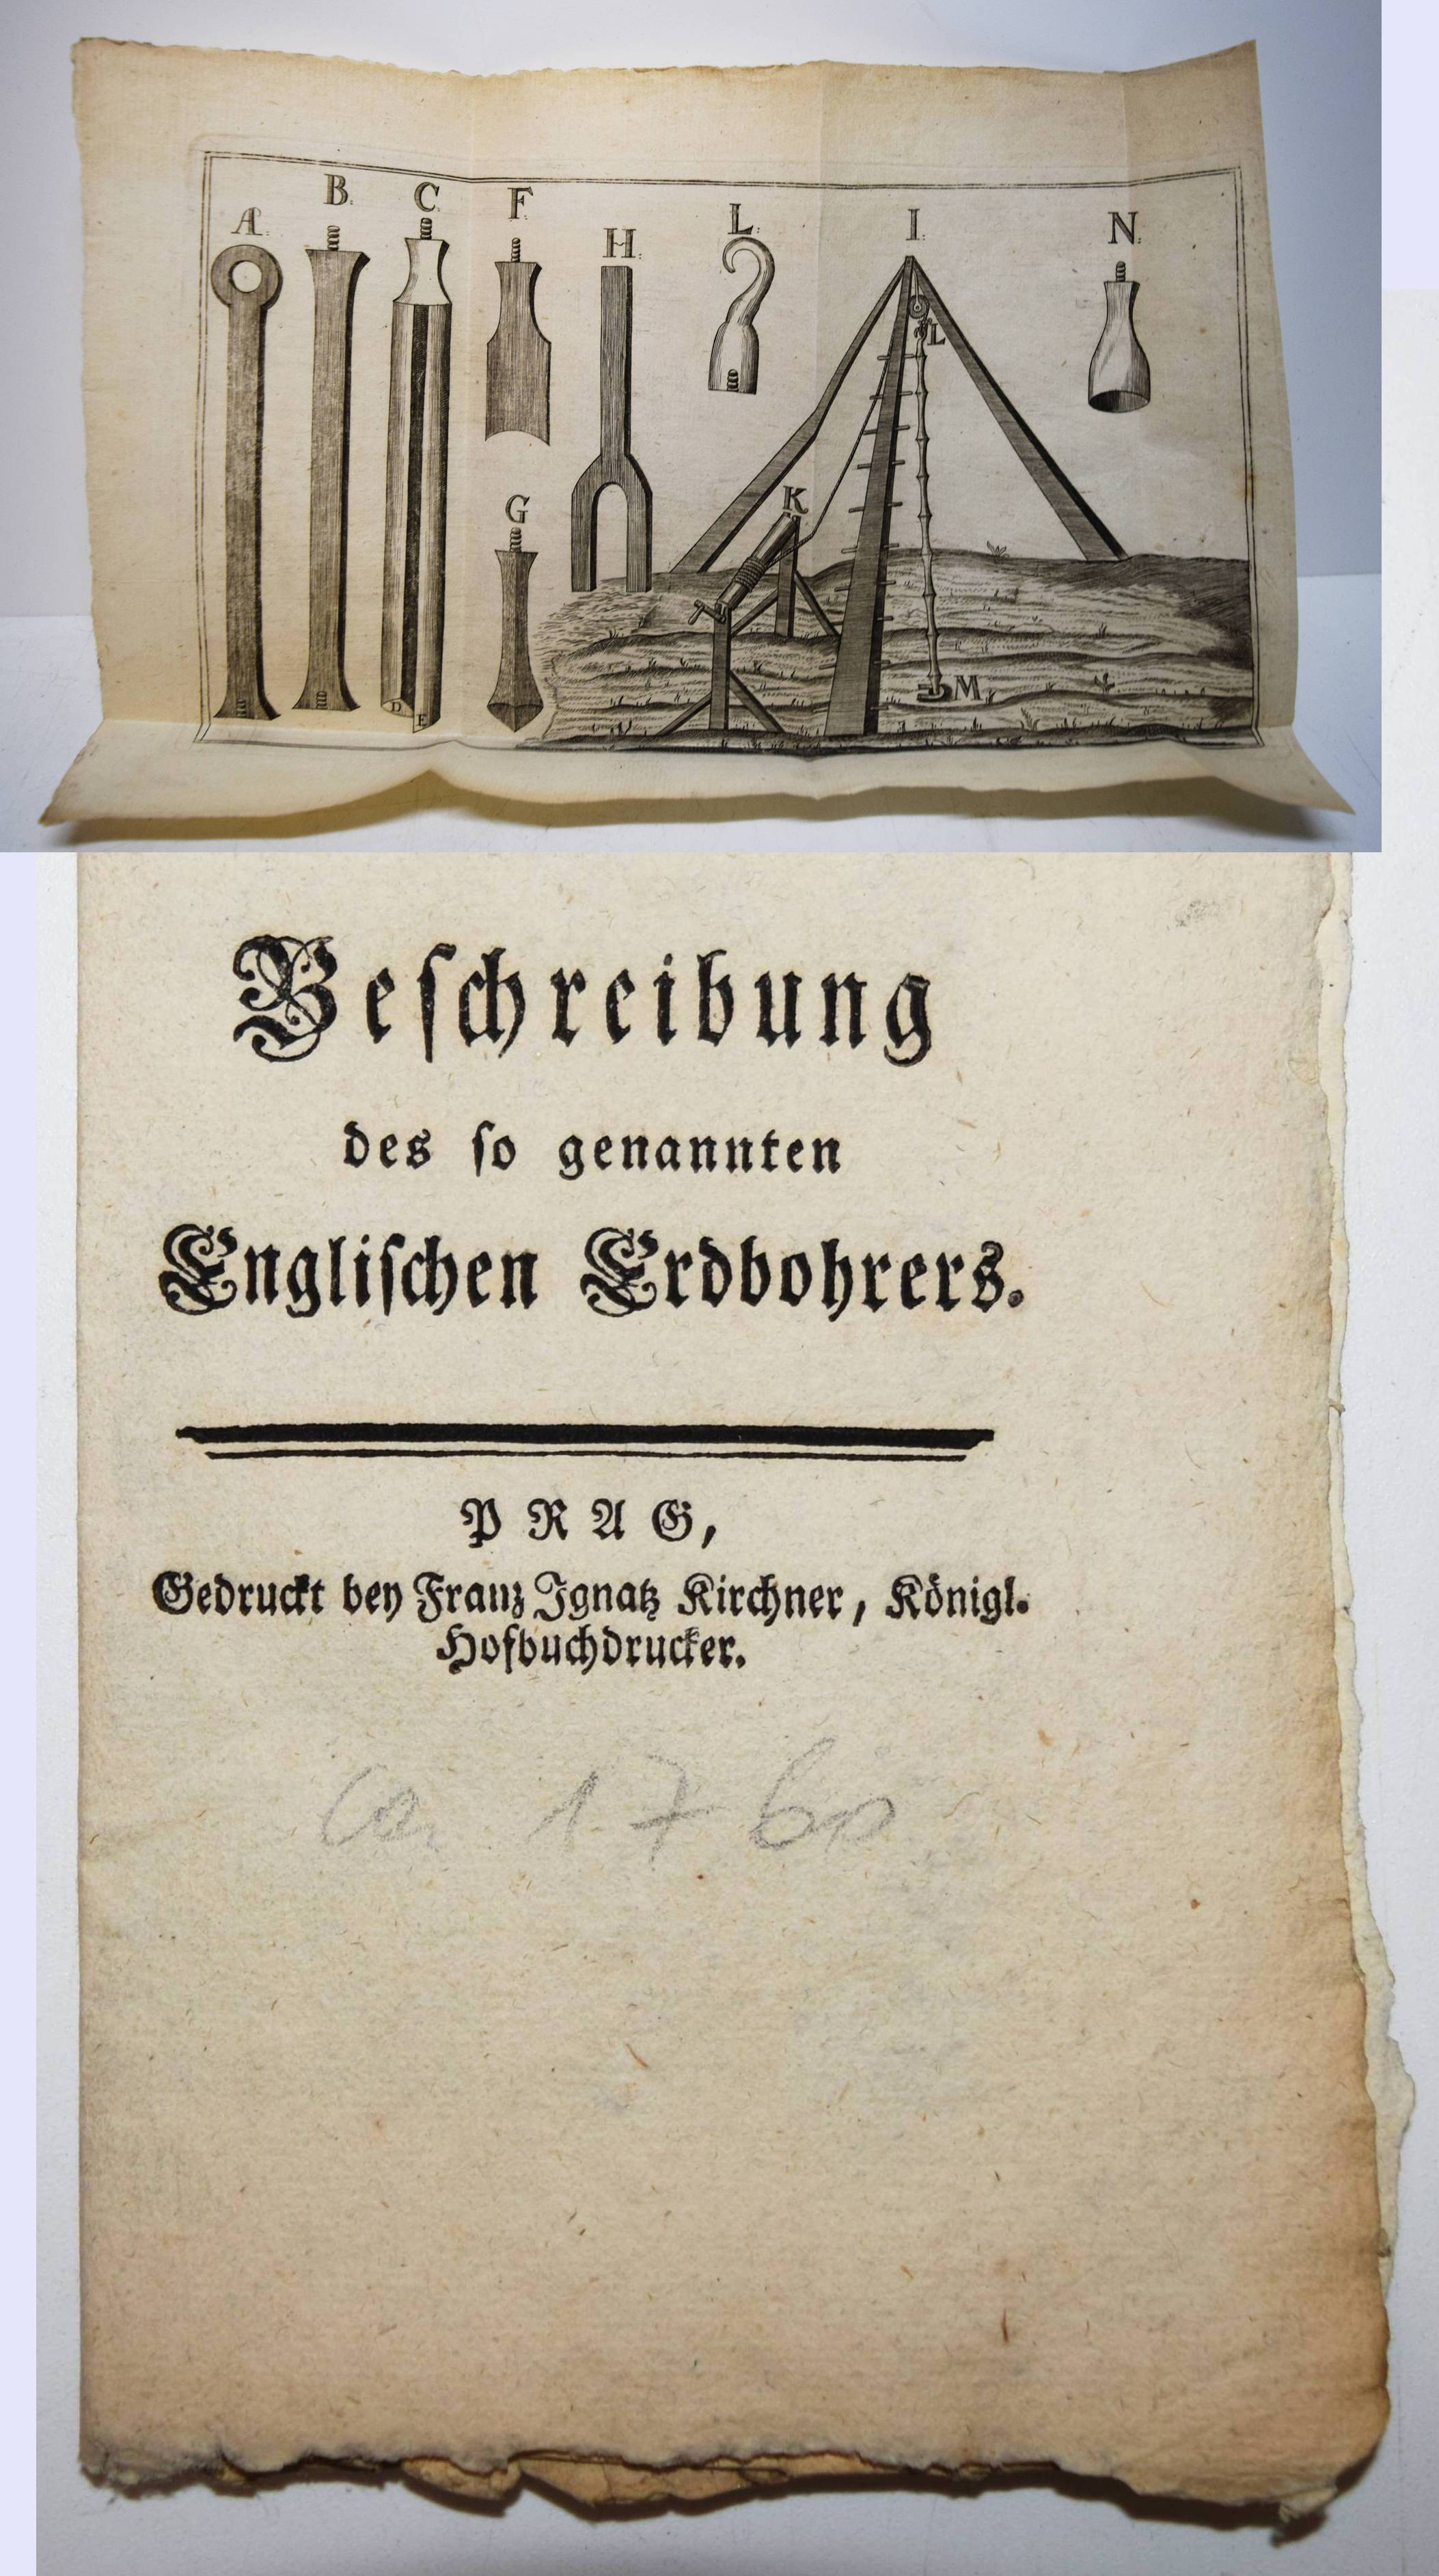 A.
B.
C.
F.
H.
L.
I.
N.
L
G
K
M.
D
E
Beſchreibung
des ſo genannten
Engliſchen Erdbohrers.
PRAG,
Gedruckt bey Franz Ignatz Kirchner, Königl.
Hofbuchdrucker.
ca. 1760